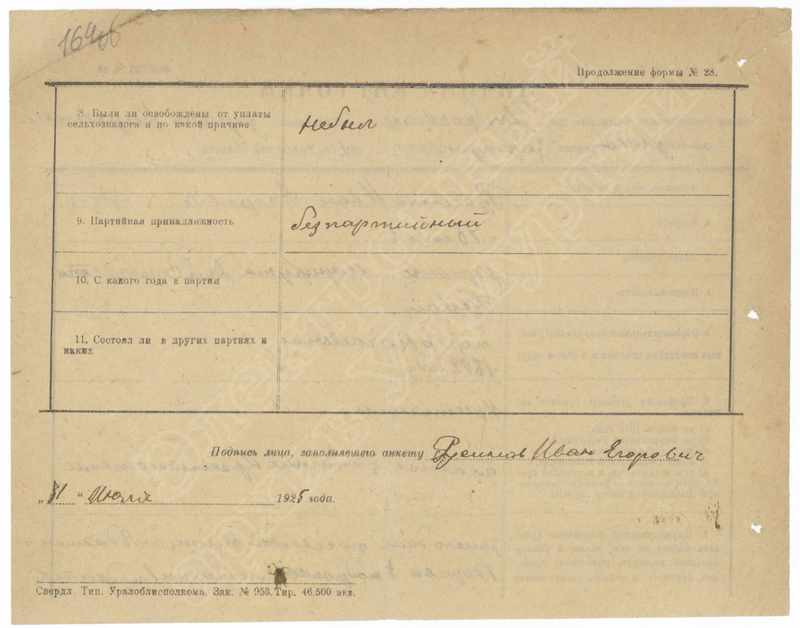 164 об
Продолжение формы № 28.
8. Были ли освобождены от уплаты
сельхозналога и по какой причине
небыл
9. Партийная принадлежность
безпартийный
10. С какого года в партии
11. Состоял ли в других партиях и
каких
Подпись лица, заполнявшего анкету Иван Егорович
„31“ Июля 1925 года.
Свердл. Тип. Уралоблисполкома. Зак. № 953. Тир. 46.500 экз.